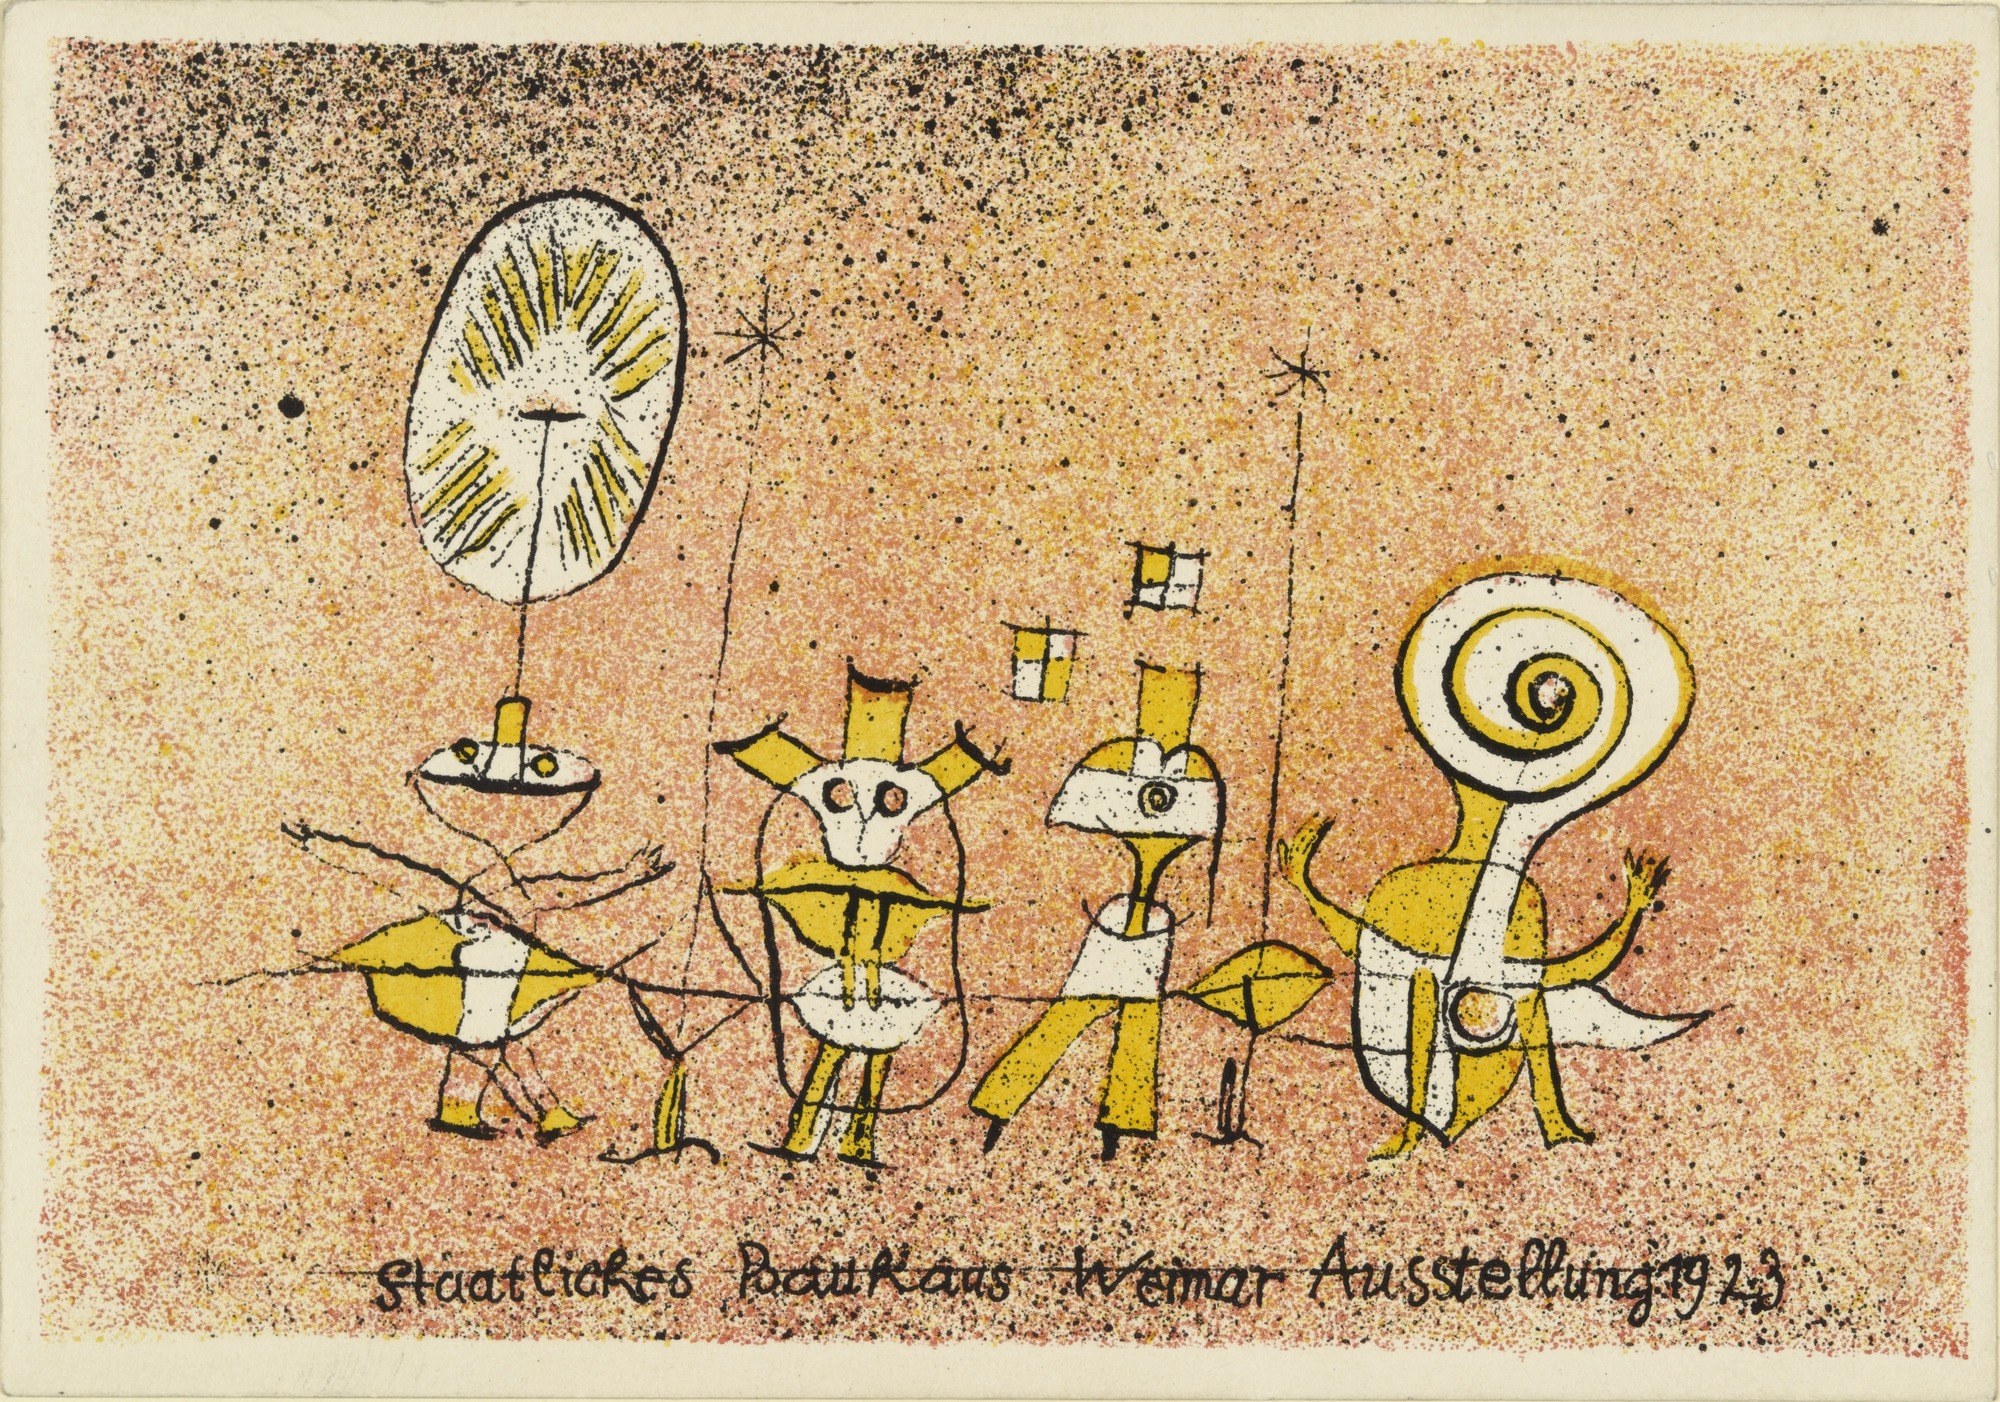 Staatliches Bauhaus Weimar Ausstellung 1923